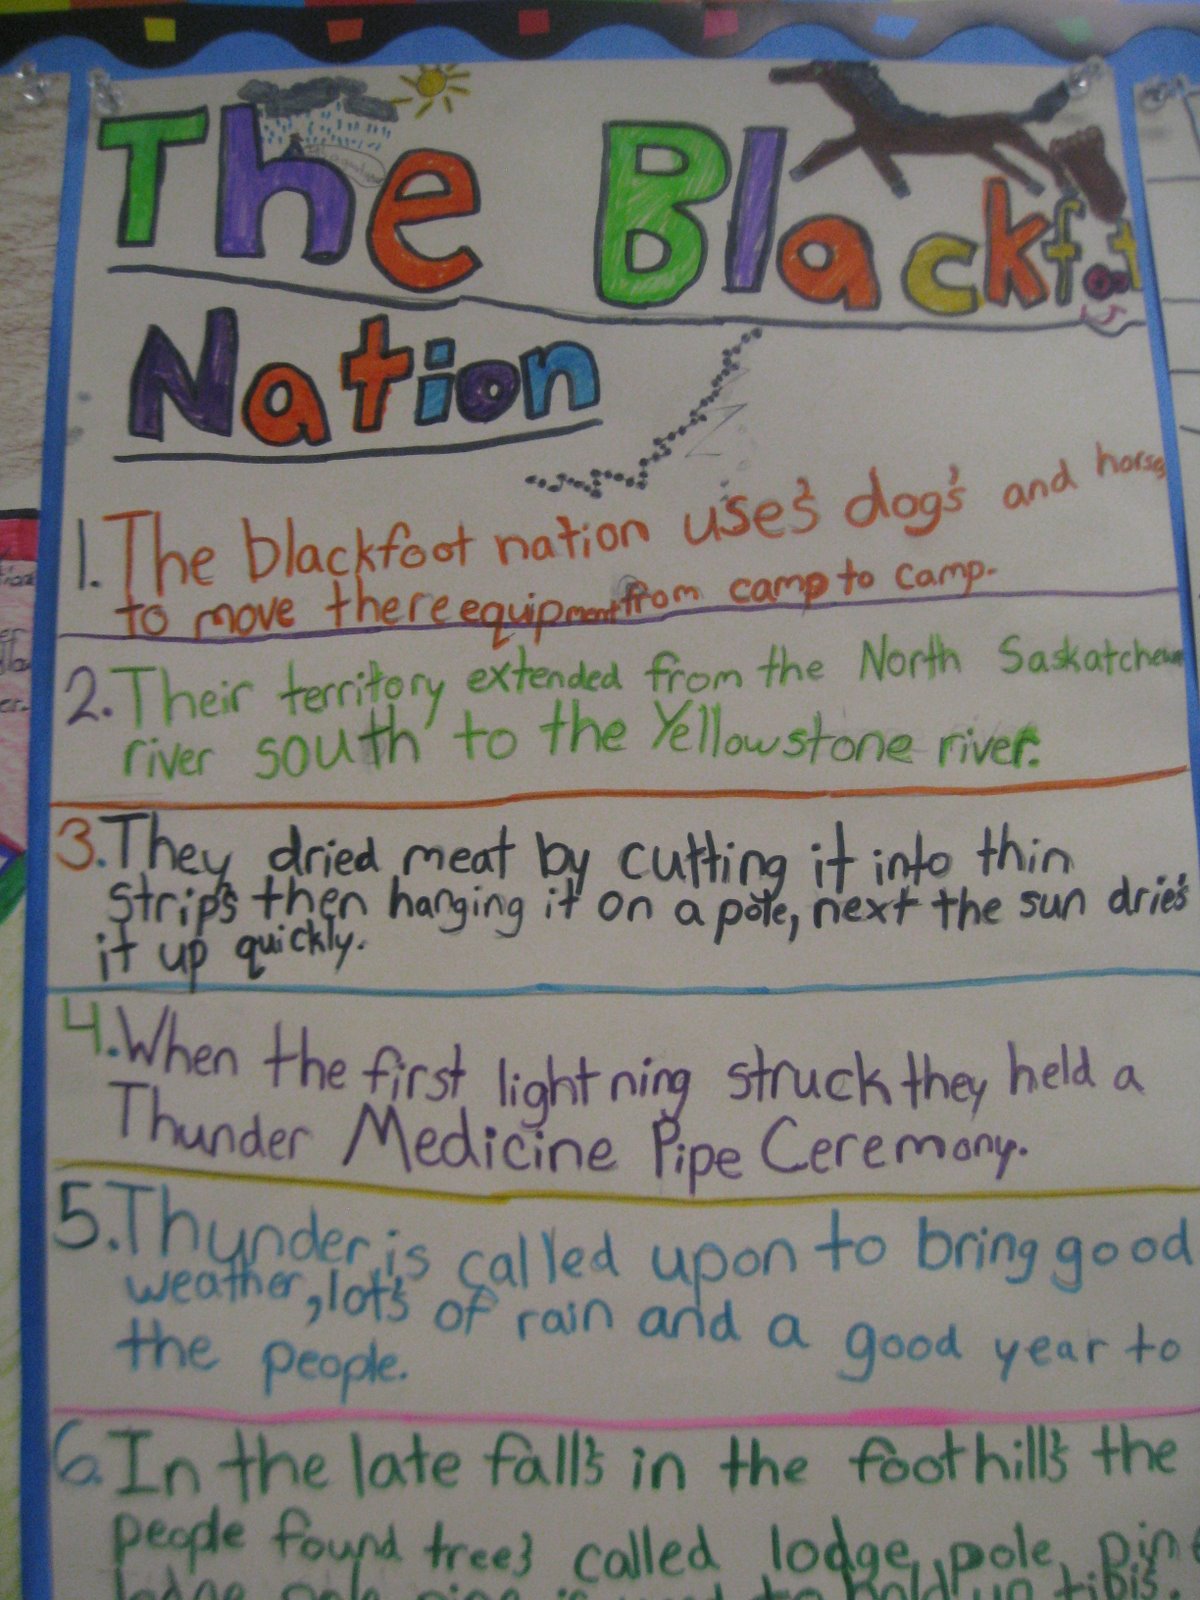 The Blackfoot
Nation
1. The blackfoot nation use's dog's and horses
to move there equipment from camp to camp.
2. Their territory extended from the North Saskatchewan
river south to the Yellowstone river.
3. They dried meat by cutting it into thin
strip's then hanging it on a pole, next the sun drie's
it up quickly.
4. When the first lightning struck they held a
Thunder Medicine Pipe Ceremony.
5. Thunder is called upon to bring good
weather, lot's of rain and a good year to
the people.
6. In the late fall's in the foothill's the
people found tree's called lodge pole pine
lodge pole pine is used to hold up tipis.